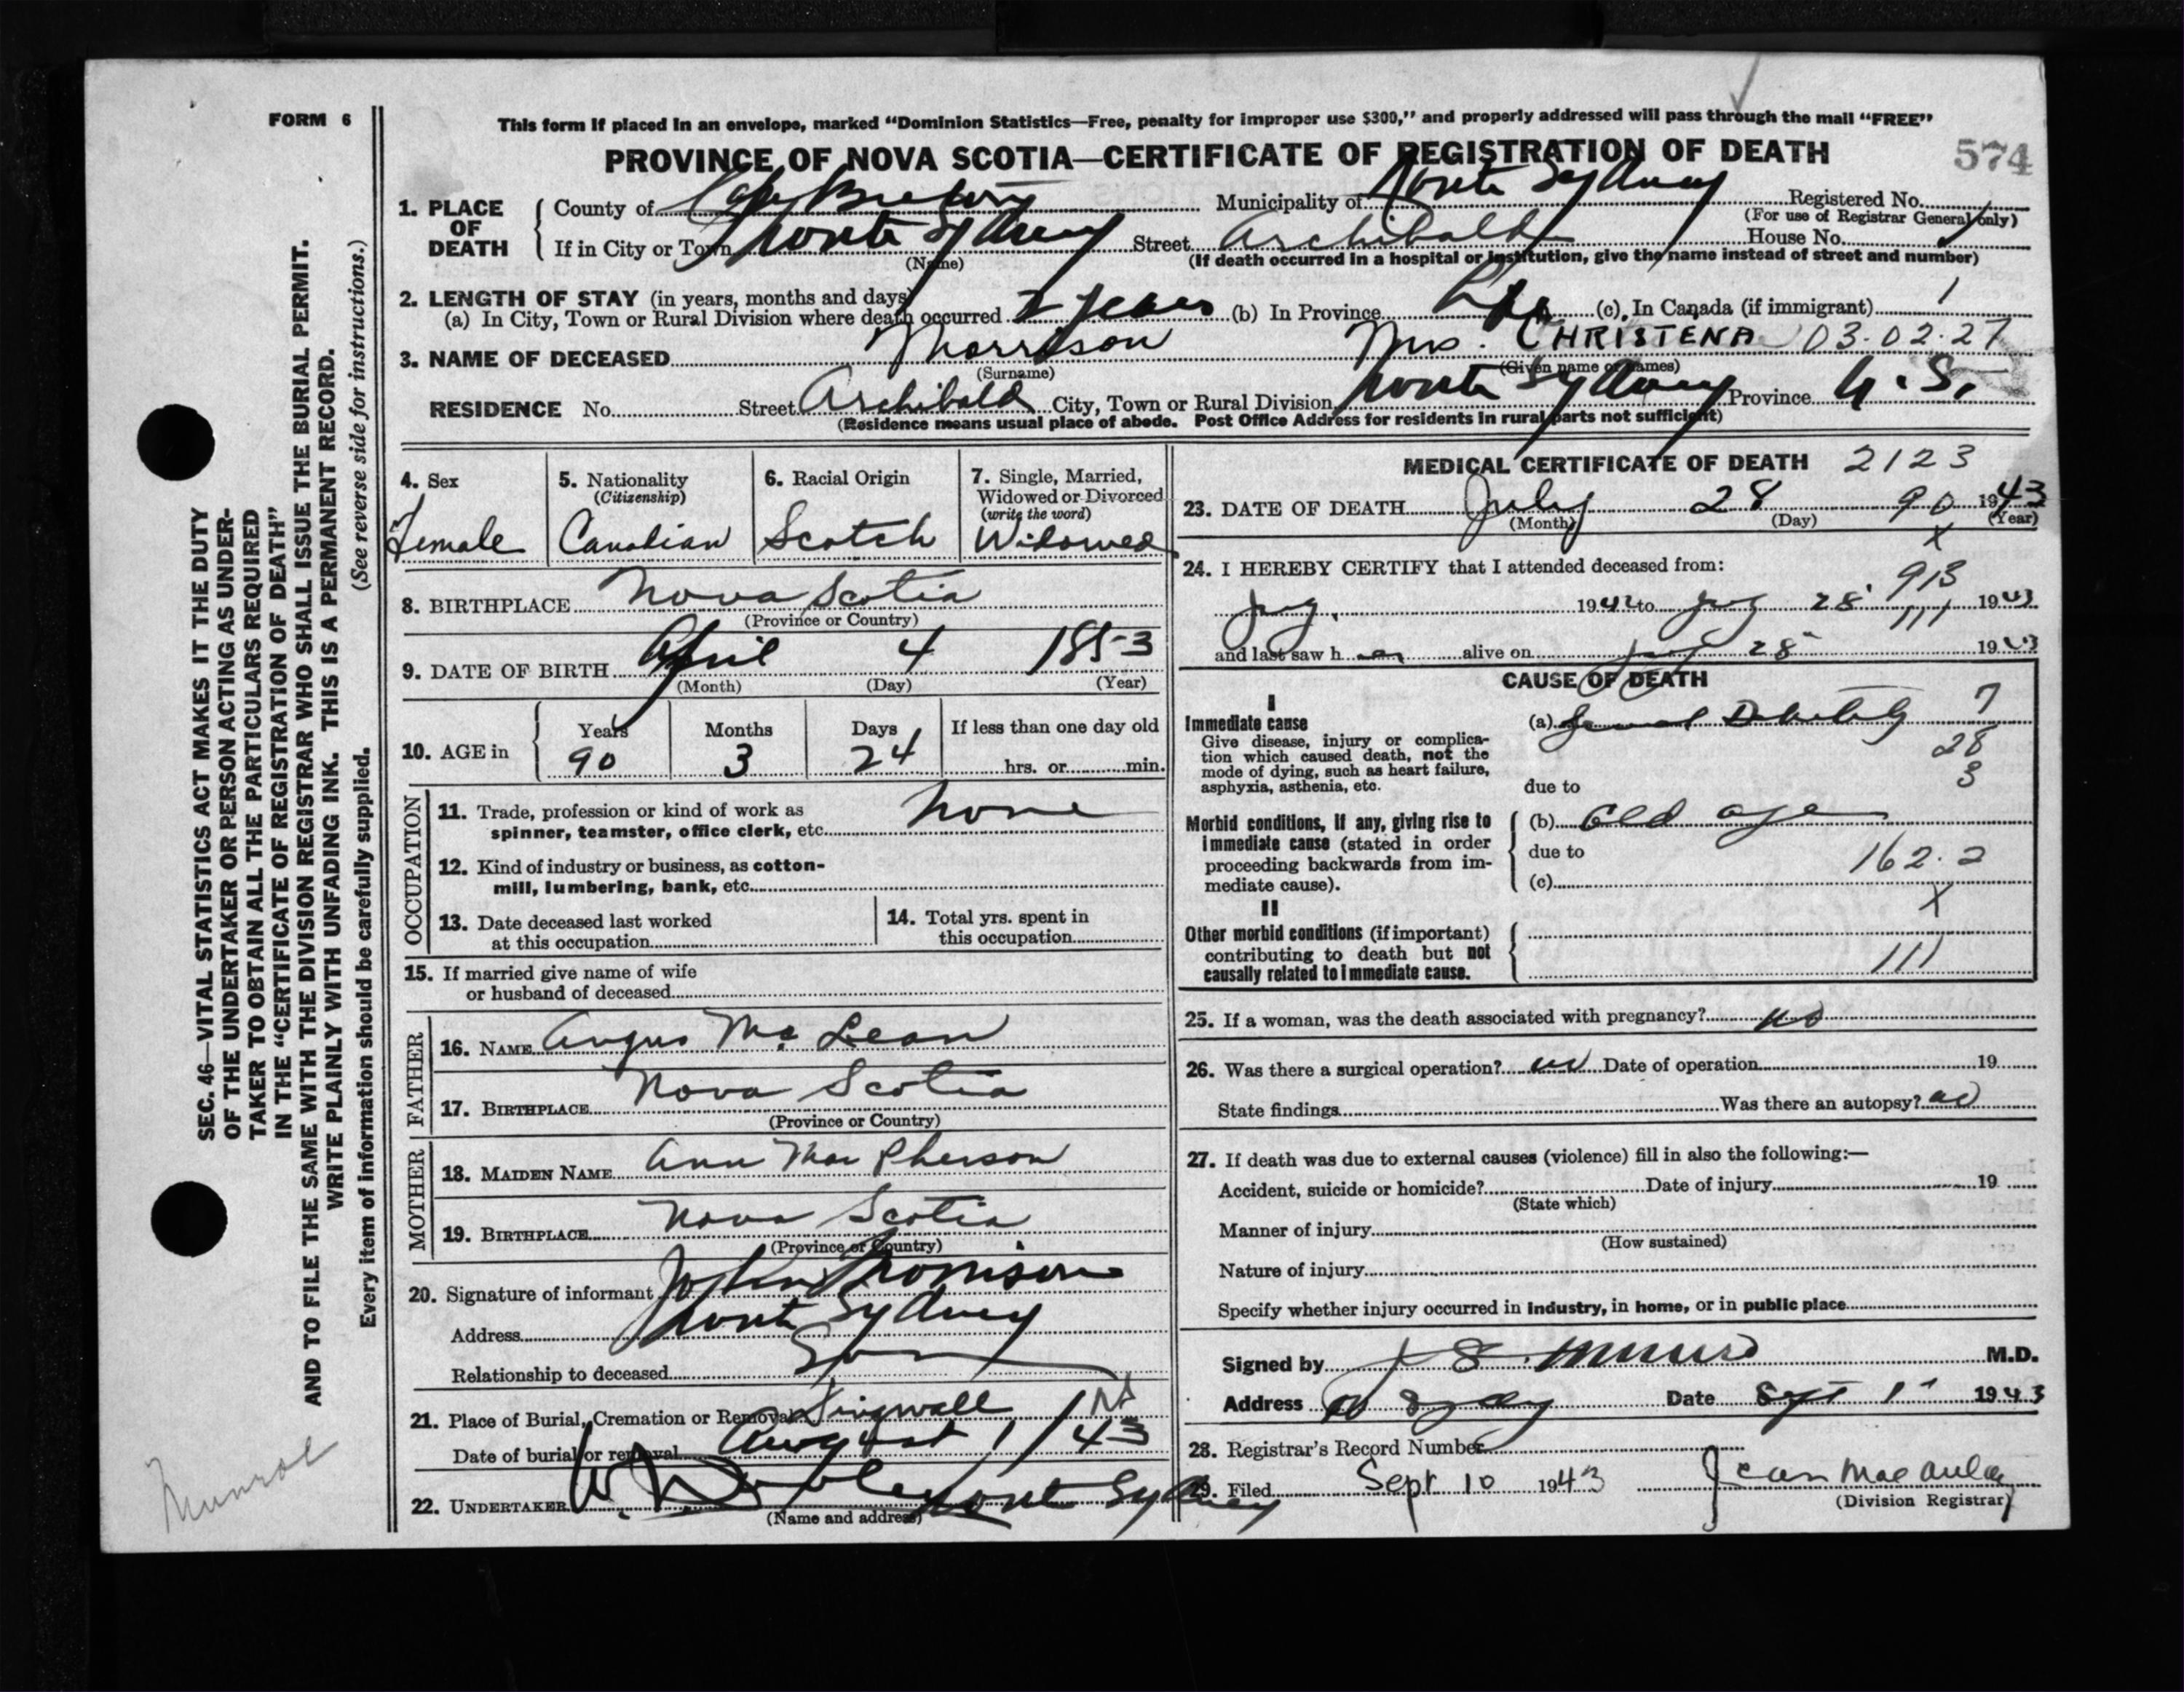 FORM 6
This form if placed in an envelope, marked "Dominion Statistics—Free, penalty for improper use $300," and properly addressed will pass through the mail "FREE"
PROVINCE OF NOVA SCOTIA—CERTIFICATE OF REGISTRATION OF DEATH
574
1. PLACE OF DEATH
County of Cape Breton Municipality of North Sydney Registered No.
(For use of Registrar General only)
If in City or Town North Sydney Street Archibald House No.
(Name) (If death occurred in a hospital or institution, give the name instead of street and number)
2. LENGTH OF STAY (in years, months and days)
(a) In City, Town or Rural Division where death occurred 2 years (b) In Province Life (c) In Canada (if immigrant) 1
3. NAME OF DECEASED Morrison Mrs. CHRISTENA 03.02.27
(Surname) (Given name or names)
RESIDENCE No. Street Archibald City, Town or Rural Division North Sydney Province N.S.
(Residence means usual place of abode. Post Office Address for residents in rural parts not sufficient)
4. Sex
Female
5. Nationality
(Citizenship)
Canadian
6. Racial Origin
Scotch
7. Single, Married, Widowed or Divorced
(write the word)
Widowed
8. BIRTHPLACE Nova Scotia
(Province or Country)
9. DATE OF BIRTH April 4 1853
(Month) (Day) (Year)
10. AGE in Years Months Days If less than one day old
90 3 24 hrs. or min.
OCCUPATION
11. Trade, profession or kind of work as
spinner, teamster, office clerk, etc. None
12. Kind of industry or business, as cotton-
mill, lumbering, bank, etc.
13. Date deceased last worked
at this occupation
14. Total yrs. spent in
this occupation
15. If married give name of wife
or husband of deceased
FATHER
16. NAME Angus McLean
17. BIRTHPLACE Nova Scotia
(Province or Country)
MOTHER
18. MAIDEN NAME Ann MacPherson
19. BIRTHPLACE Nova Scotia
(Province or Country)
20. Signature of informant John Morrison
Address North Sydney
Relationship to deceased Son
21. Place of Burial, Cremation or Removal
Date of burial or removal August 1/43
22. UNDERTAKER North Sydney
(Name and address)
MEDICAL CERTIFICATE OF DEATH 2123
23. DATE OF DEATH July 28 90 1943
(Month) (Day) (Year)
X
24. I HEREBY CERTIFY that I attended deceased from:
913
1942 to 28 1943
111
and last saw her alive on 28 1943
CAUSE OF DEATH
I
Immediate cause
Give disease, injury or complica-
tion which caused death, not the
mode of dying, such as heart failure,
asphyxia, asthenia, etc.
(a) General Debility 7
28
3
due to
Morbid conditions, if any, giving rise to
immediate cause (stated in order
proceeding backwards from im-
mediate cause).
(b) Old age
due to
162.2
(c)
X
II
Other morbid conditions (if important)
contributing to death but not
causally related to immediate cause.
111
25. If a woman, was the death associated with pregnancy? no
26. Was there a surgical operation? no Date of operation 19
State findings Was there an autopsy? no
27. If death was due to external causes (violence) fill in also the following:—
Accident, suicide or homicide? Date of injury 19
(State which)
Manner of injury
(How sustained)
Nature of injury
Specify whether injury occurred in industry, in home, or in public place
Signed by Munro M.D.
Address N Sydney Date Sept 1st 1943
28. Registrar's Record Number
29. Filed Sept 10 1943 Jean MacAulay
(Division Registrar)
SEC. 46—VITAL STATISTICS ACT MAKES IT THE DUTY
OF THE UNDERTAKER OR PERSON ACTING AS UNDER-
TAKER TO OBTAIN ALL THE PARTICULARS REQUIRED
IN THE "CERTIFICATE OF REGISTRATION OF DEATH"
AND TO FILE THE SAME WITH THE DIVISION REGISTRAR WHO SHALL ISSUE THE BURIAL PERMIT.
WRITE PLAINLY WITH UNFADING INK. THIS IS A PERMANENT RECORD.
Every item of information should be carefully supplied. (See reverse side for instructions.)
Munroe